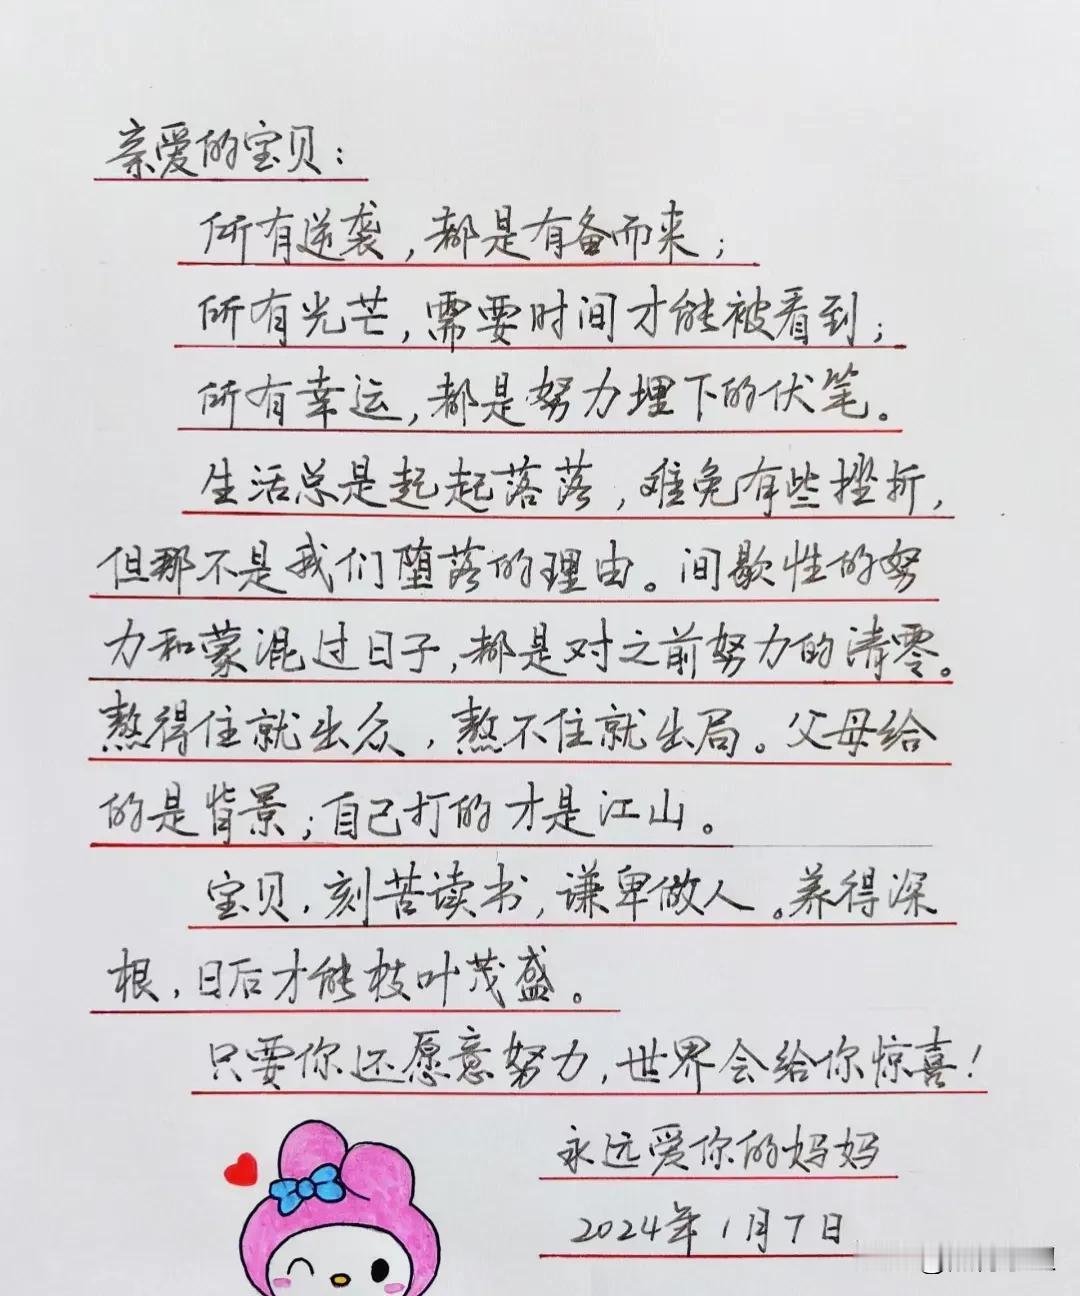 亲爱的宝贝：
所有逆袭，都是有备而来；
所有光芒，需要时间才能被看到；
所有幸运，都是努力埋下的伏笔。
生活总是起起落落，难免有些挫折，
但那不是我们堕落的理由。间歇性的努
力和蒙混过日子，都是对之前努力的清零。
熬得住就出众，熬不住就出局。父母给
的是背景；自己打的才是江山。
宝贝，刻苦读书，谦卑做人。养得深
根，日后才能枝叶茂盛。
只要你还愿意努力，世界会给你惊喜！
永远爱你的妈妈
2024年1月7日